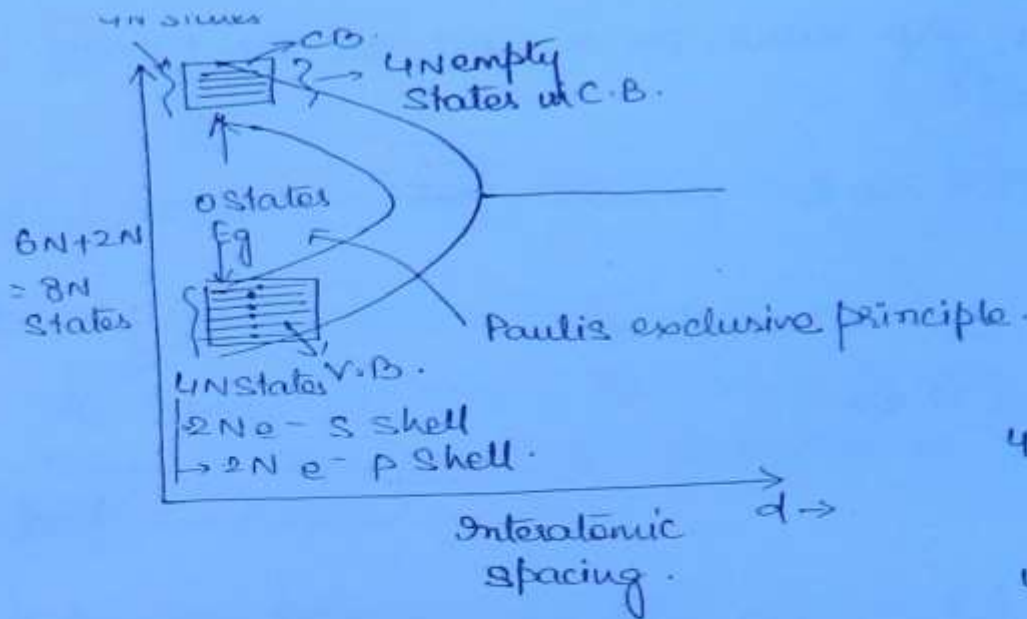 4N states
CB.
4N empty
States in C.B.
0 states
Eg
6N+2N
= 8N
States
Paulis exclusive principle.
4N States V.B.
2N e- S Shell
→ 2N e- p Shell.
d →
Interatomic
spacing.